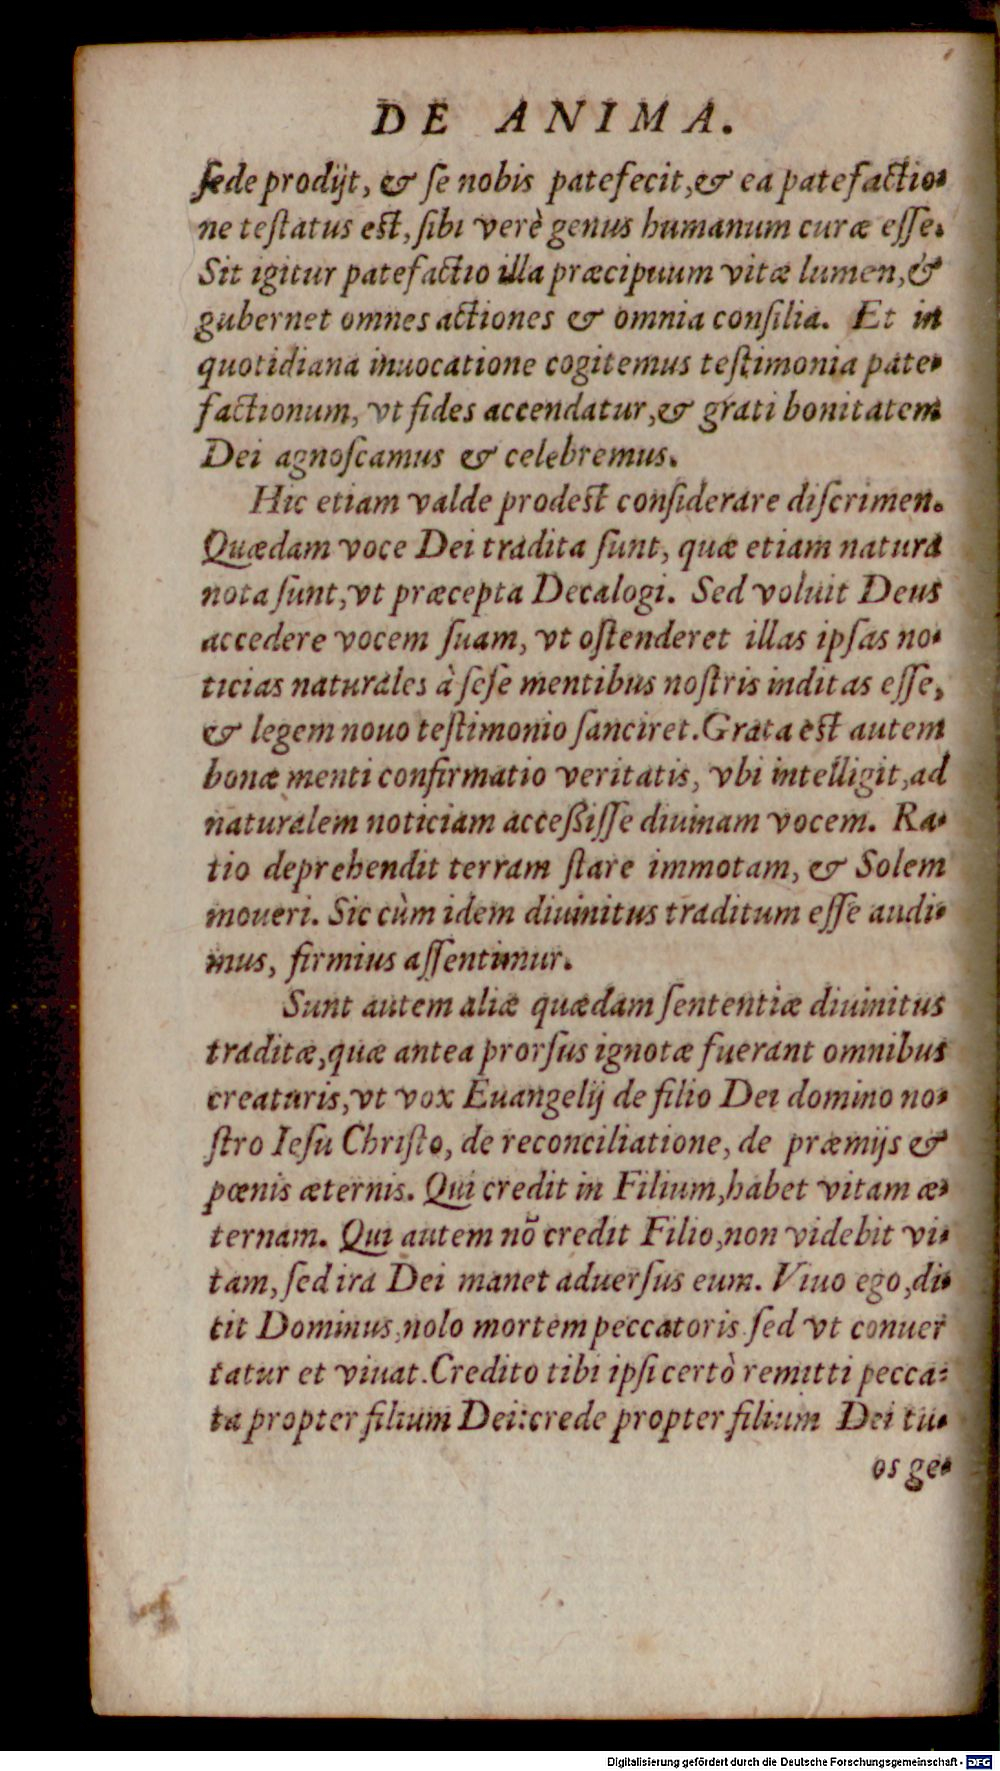 DE ANIMA.
ſede prodijt, & ſe nobis patefecit, & ea patefactio-
ne teſtatus eſt, ſibi verè genus humanum curæ eſſe.
Sit igitur patefactio illa præcipuum vitæ lumen, &
gubernet omnes actiones & omnia conſilia. Et in
quotidiana inuocatione cogitemus teſtimonia pate-
factionum, vt fides accendatur, & grati bonitatem
Dei agnoſcamus & celebremus.
Hic etiam valde prodeſt conſiderare diſcrimen.
Quædam voce Dei tradita ſunt, quæ etiam natura
nota ſunt, vt præcepta Decalogi. Sed voluit Deus
accedere vocem ſuam, vt oſtenderet illas ipſas no-
ticias naturales à ſeſe mentibus noſtris inditas eſſe,
& legem nouo teſtimonio ſanciret. Grata eſt autem
bonæ menti confirmatio veritatis, vbi intelligit, ad
naturalem noticiam acceßiſſe diuinam vocem. Ra-
tio deprehendit terram ſtare immotam, & Solem
moueri. Sic cùm idem diuinitus traditum eſſe audi-
mus, firmius aſſentimur.
Sunt autem aliæ quædam ſententiæ diuinitus
traditæ, quæ antea prorſus ignotæ fuerant omnibus
creaturis, vt vox Euangelij de filio Dei domino no-
ſtro Ieſu Chriſto, de reconciliatione, de præmijs &
pœnis æternis. Qui credit in Filium, habet vitam æ-
ternam. Qui autem nõ credit Filio, non videbit vi-
tam, ſed ira Dei manet aduerſus eum. Viuo ego, di-
cit Dominus, nolo mortem peccatoris ſed vt conuer
tatur et viuat. Credito tibi ipſi certò remitti pecca-
ta propter filium Dei: crede propter filium Dei tu-
os ge-
Digitalisierung gefördert durch die Deutsche Forschungsgemeinschaft - DFG